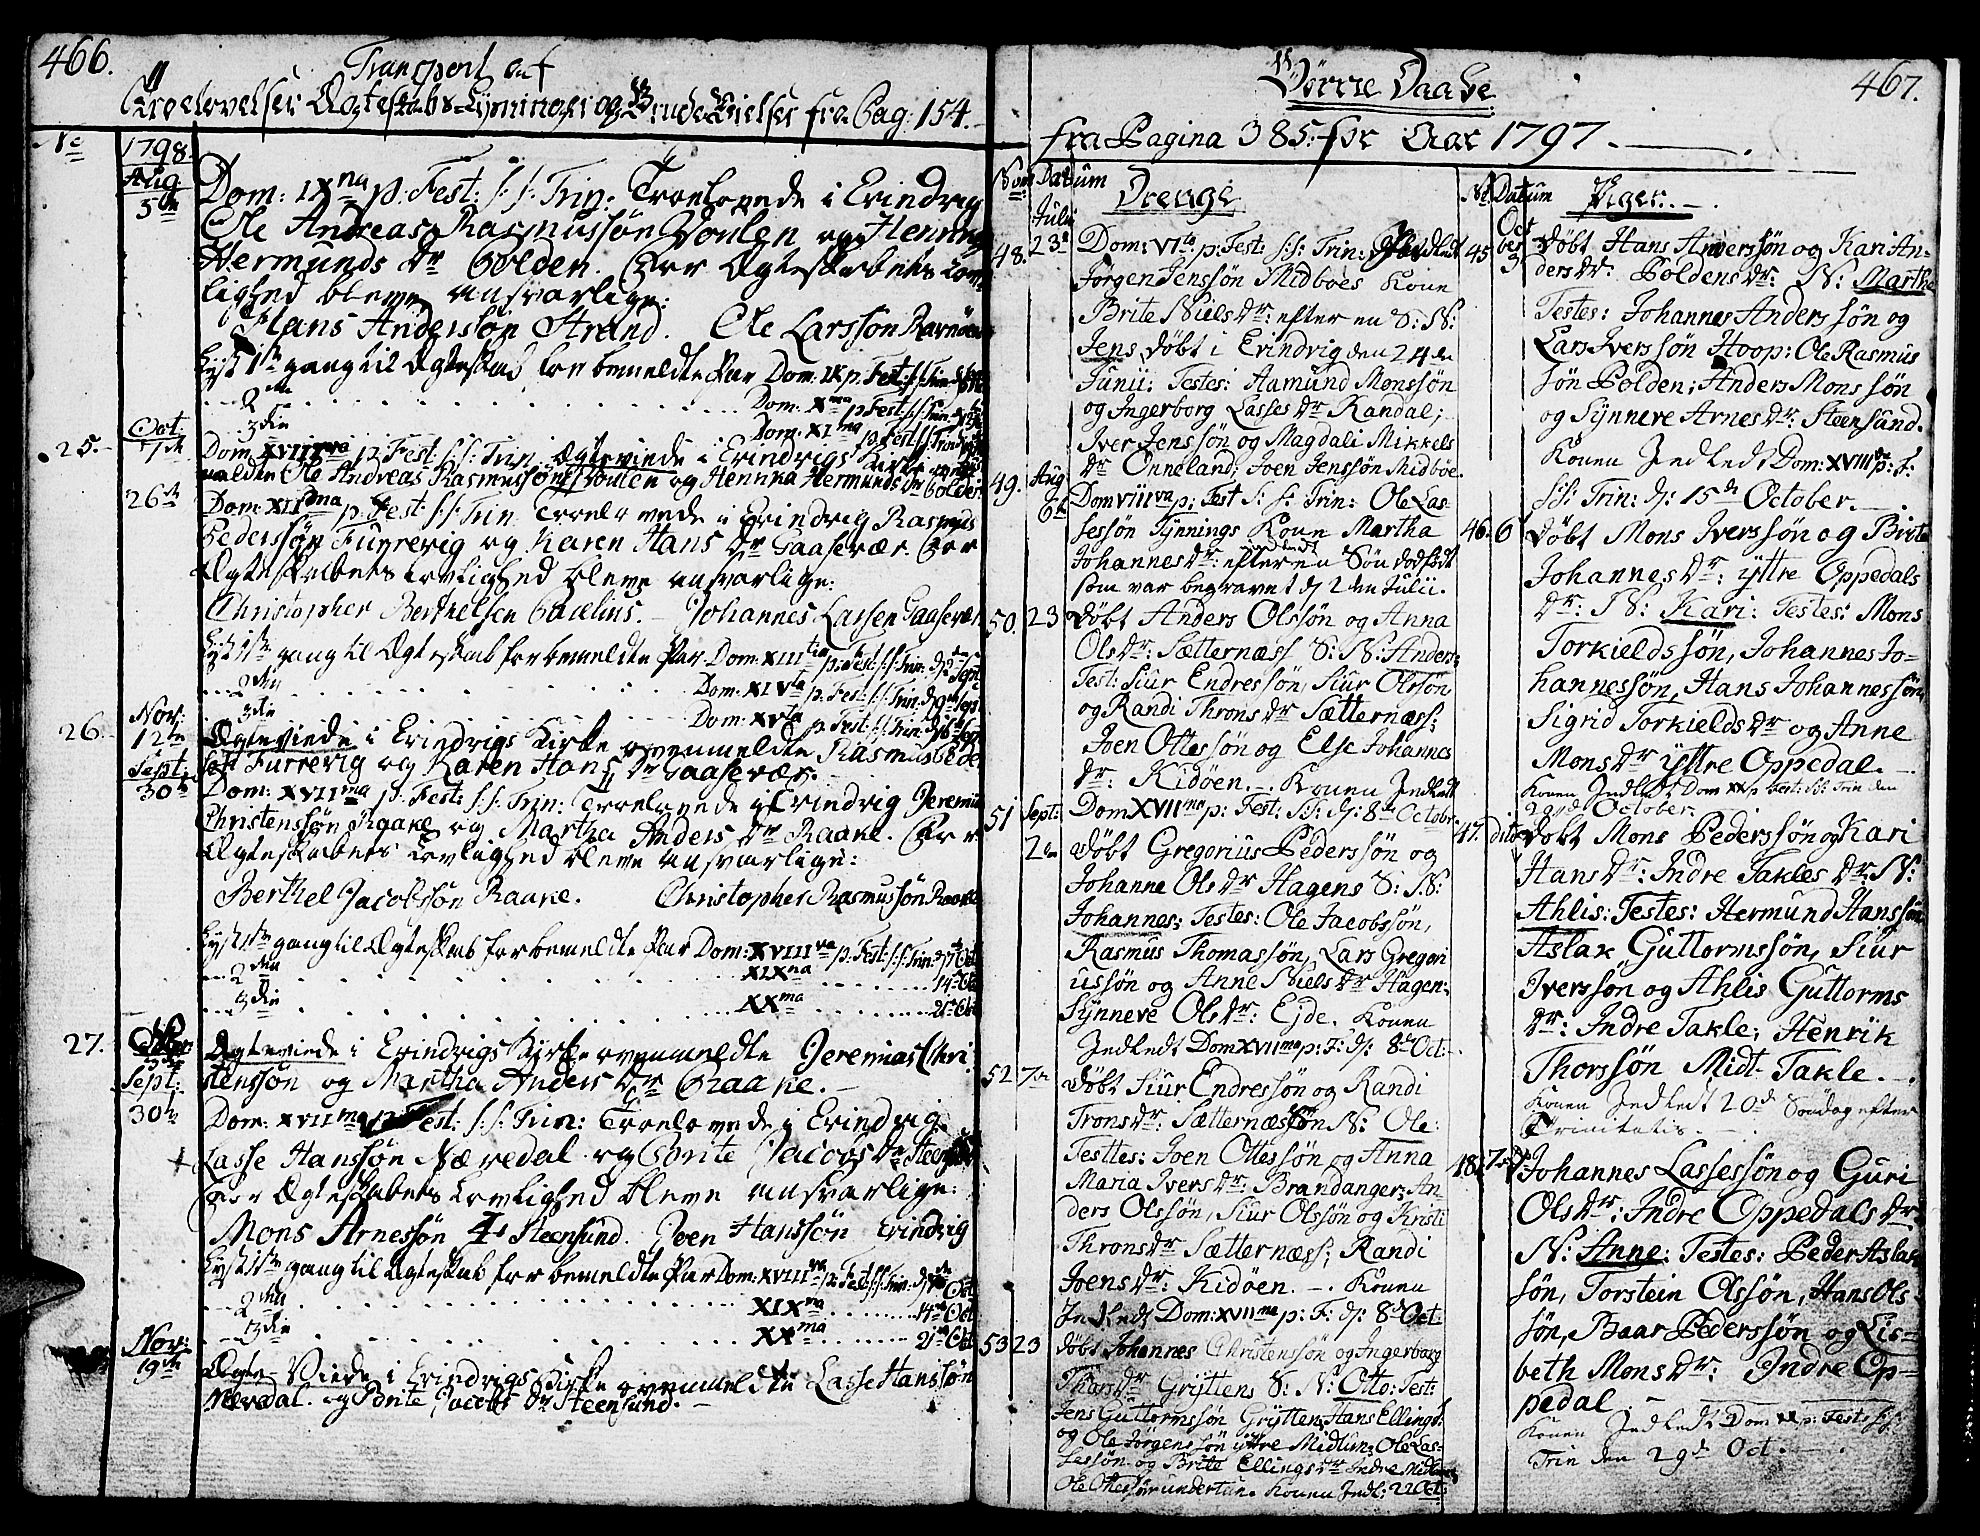 466.
Transport af
Troelovelser Ægteskabs-Lysninger og BrudeVielser fra Pag: 154.
No
1798.
Aug
5te
Dom: IXna p: Fest: s: s: Trin: Troelovede i Evindvig
Ole Andreas Rasmussøn Voulen og Henrica
Hermunds Dr Polden. For Ægteskabets Lov-
lighed bleve ansvarlige:
Hans Anderssøn Strand. Ole Larssøn Ravnøen
Lyst 1ste gang til Ægteskab for bemeldte Par Dom: IX p: Fest: s: s: Trin:
2den Dom: Xma p Fest: s: s: Trin
3die Dom: XIma p Fest: s: s: Trin
25.
Oct.
7de
Dom XVIIIva p: Fest: s: s: Trin. Ægteviede i Evindvigs Kirke
meldte Ole Andreas Rasmussøn Voulen og Henrica Hermunds Dr Polden
26de
Dom: XIIma p: Fest: s: s: Trin Troelovede i Evindvig Rasmus
Pederssøn Furrevig og Karen Hans Dr Gaasevær. For
Ægteskabets Lovlighed bleve ansvarlige:
Christopher Berthelsen Paulius. Johannes Larsen Gaasevær
Lyst 1ste gang til Ægteskab for bemeldte Par Dom: XIIItia p: Fest: s: s: Trin: d: Sept
2den Dom: XIVta p: Fest: s: s: Trin: d: 9 Sept
3die Dom: XVta p Fest: s: s: Trin: d: 16 Sept
26.
Nov:
12te
Ægteviede i Evindvigs Kirke ovenmeldte Rasmus Peder
søn Furrevig og Karen Hans Dr Gaasevær.
Sept.
30te
Dom: XVIIma p: Fest: s: s: Trin: Troelovede i Evindvig Jeremias
Christenssøn Raake og Martha Anders Dr Raake. For
Ægteskabets Lovlighed bleve ansvarlige:
Berthel Jacobsøn Raake. Christopher Rasmussøn Raake
Lyst 1ste gang til Ægteskab for bemeldte Par Dom: XVIIIva p: Fest: s: s: Trin: d: 7 Oct
2den XIXna 14de Oct
3die XXma 21de Oct
27.
Ægteviede i Evindvigs Kirke ovenmeldte Jeremias Chri
stenssøn og Martha Anders Dr Raake.
Sept:
30te
Dom: XVIIma p: Fest: s: s: Trin: Troelovede i Evindvig
Lasse Hanssøn Næredal og Dorite Jacobs Dr Steensund
For Ægteskabets Lovlighed bleve ansvarlige:
Mons Arnessøn Steensund. Joen Hanssøn Evindvig
Lyst 1ste gang til Ægteskab for bemeldte Par Dom: XVIIIva p: Fest: s: s: Trin: d: 7de Oct
2den XIXna 14de Oct
3die XXma 21de Oct
Nov:
19de
Ægte-Viede i Evindvigs Kirke ovenmeldte Lasse Hanssøn
Næredal og Dorite Jacobs Dr Steensund.
467.
Børne Daabe
fra Pagina 385 for Aar 1797.
Num Datum Drenge
48.
Julii
23de
Dom: VIta p: Fest s: s: Trin: Indledt
Jørgen Jenssøn Midbøes Kone
Brite Niels Dr: efter en S: N:
Jens døbt i Evindvig den 24de
Junii: Testes: Aamund Monssøn
og Ingerborg Lasses Dr Randal;
Iver Jenssøn og Magdali Mikkels
Dr Onneland; Joen Jenssøn Midbøe.
49.
Aug
6te
Dom VIIIva p: Fest s: s: Trin: Ole Las-
sessøn Tynnings Kone Martha
Johannes Dr: efter en Søn dødfødt
som var begravet d: 2den Julii.
50. 23
Døbt Anders Olssøn og Anna
Ols Dr: Sætternæss S: N: Anders:
Test: Siur Endressøn, Siur Olssøn
og Randi Throns Dr Sætternæss;
Joen Ottessøn og Else Johannes
Dr: Kidøen. Konen Indledt
Dom XVIIma p: Fest: s: s: d: 8de October
51
Sept:
2den
Døbt Gregorius Pederssøn og
Johanne Ols Dr Hagens S: N:
Johannes: Testes: Ole Jacobssøn,
Rasmus Thomassøn, Lars Gregori
ussøn og Anne Niels Dr Hagen:
Synneve Ols Dr: Ejde. Konen
Indledt Dom XVIIma p: F: d: 8de Oct:
52 7de
Døbt Siur Endressøn og Randi
Trons Dr: Sætternæs Søn N: Ole:
Testtes: Joen Ottessøn og Anna
Maria Ivers Dr: Brandanger; An-
ders Olssøn, Siur Olssøn og Kristi
Throns Dr Sætternæss; Randi
Joens Dr: Kidøen. Konen
Indledt Dom: XVIIma p: F: d: 8de Oct
53 23
Døbt Johannes Christenssøn og Ingerborg
Thors Dr Gryttens S: N: Otto: Test:
Jens Guttormssøn Grytten; Hans Ellings:
og Ole Jørgenssøn yttre Midtun; Ole Las-
sessøn og Brite Ellings Dr Indre Midtun
Ole Ottessøn undertun. Konen Indl: 22 Oct:
No Datum Piger.
45
Oct
ber
3
Døbt Hans Anderssøn og Kari An-
ders Dr: Poldens Dr: N: Marthe
Testes: Johannes Anderssøn og
Lars Iverssøn Hoop: Ole Rasmus
søn Polden; Anders Monssøn
og Synneve Arnes Dr: Steensund.
Konen Indledt Dom: XVIIIva p: F:
s: s: Trin: d: 15de October.
46. 6
Døbt Mons Iverssøn og Brite
Johannes Dr: yttre Oppedals
Dr: N: Kari: Testes: Mons
Torkieldssøn, Johannes Jo-
hannessøn, Hans Johannessøn,
Sigrid Torkields Dr og Anne
Mons Dr yttre Oppedal.
Konen Indledt Dom XX p: Fest: s: s: Trin den
29de October.
47. dito
Døbt Mons Pederssøn og Kari
Hans Dr: Indre Takles Dr: N:
Ahlis: Testes: Hermund Hanssøn
Aslak Guttormssøn, Siur
Iverssøn og Ahlis Guttorms
Dr: Indre Takle; Henrik
Thorssøn Midt-Takle.
Konen Indledt 20de Søndag efter
Trinitatis.
48. 7de
Johannes Lassessøn og Guri
Ols Dr: Indre Oppedals Dr
N: Anne: Testes: Peder Aslak
søn, Torstein Olssøn, Hans Ols-
søn, Baar Pederssøn og Lis-
beth Mons Dr: Indre Op-
pedal.
Konen Indledt Dom XX p: Fest: s: s:
Trin den 29de Oct.